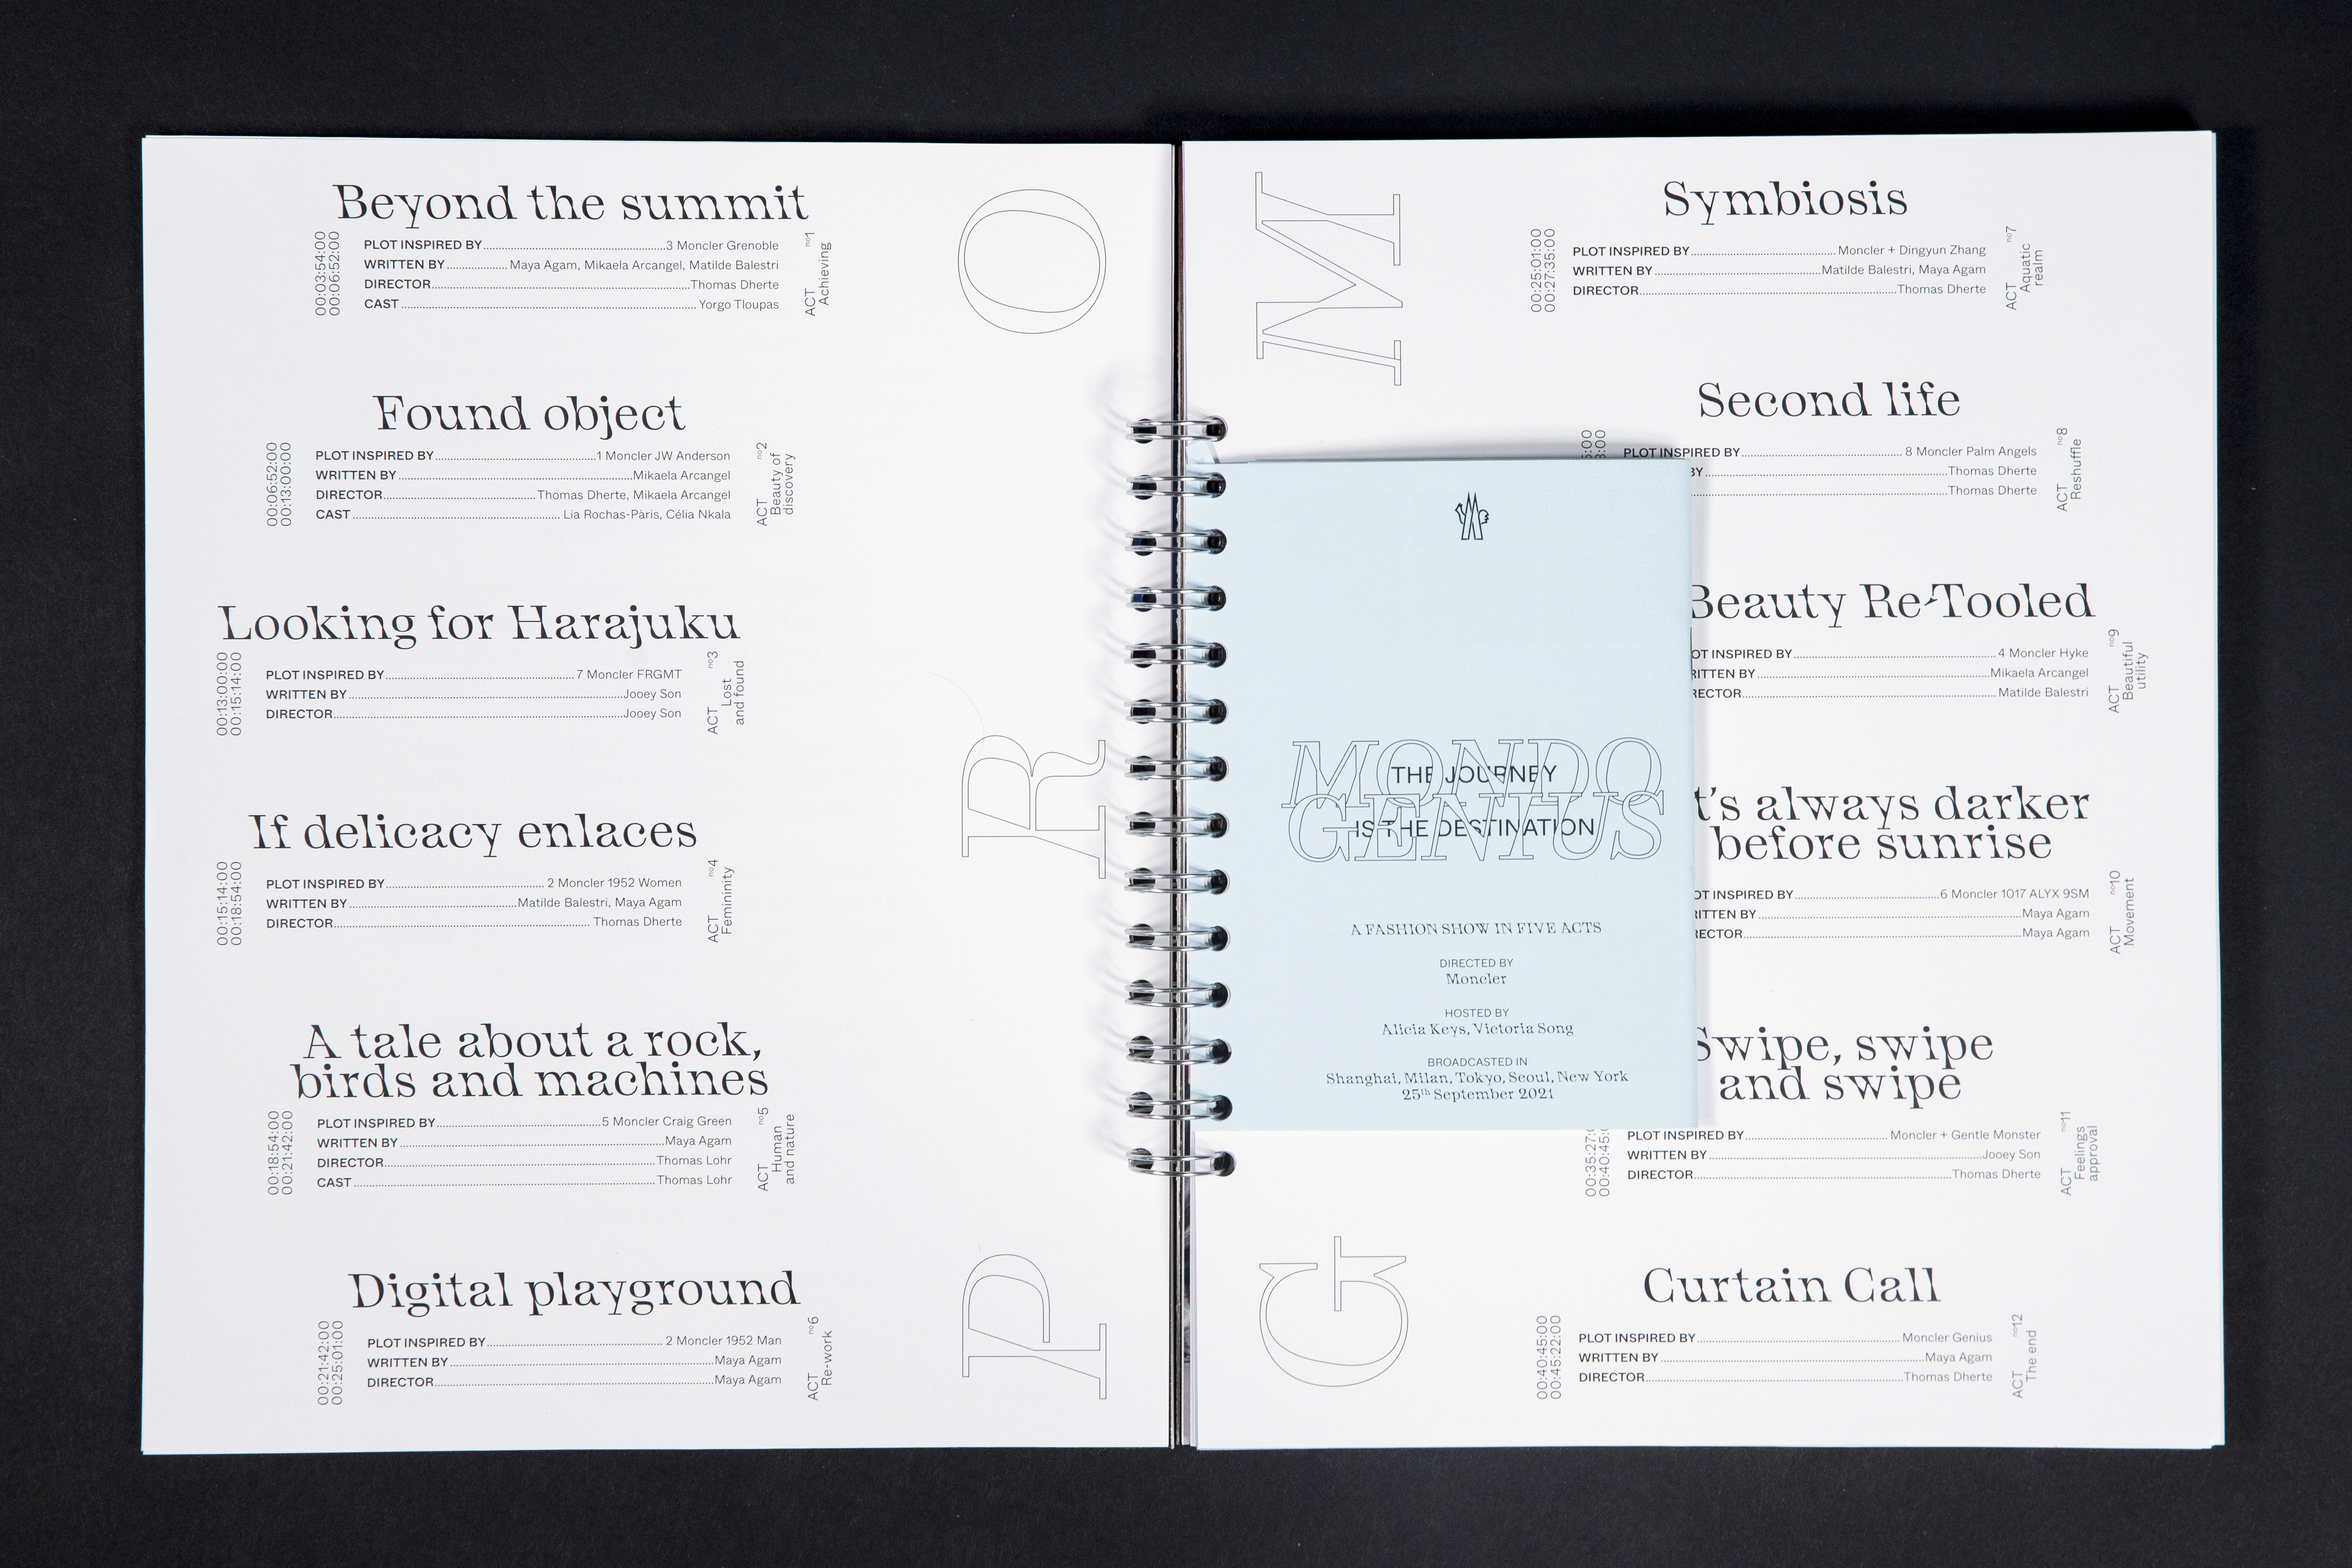 Beyond the summit
00:03:54:00
00:06:52:00
PLOT INSPIRED BY 3 Moncler Grenoble
WRITTEN BY Maya Agam, Mikaela Arcangel, Matilde Balestri
DIRECTOR Thomas Dherte
CAST Yorgo Tloupas
ACT no1
Achieving
Found object
00:06:52:00
00:13:00:00
PLOT INSPIRED BY 1 Moncler JW Anderson
WRITTEN BY Mikaela Arcangel
DIRECTOR Thomas Dherte, Mikaela Arcangel
CAST Lia Rochas-Pàris, Célia Nkala
ACT no2
Beauty of
discovery
Looking for Harajuku
00:13:00:00
00:15:14:00
PLOT INSPIRED BY 7 Moncler FRGMT
WRITTEN BY Jooey Son
DIRECTOR Jooey Son
ACT no3
Lost
and found
If delicacy enlaces
00:15:14:00
00:18:54:00
PLOT INSPIRED BY 2 Moncler 1952 Women
WRITTEN BY Matilde Balestri, Maya Agam
DIRECTOR Thomas Dherte
ACT no4
Femininity
A tale about a rock,
birds and machines
00:18:54:00
00:21:42:00
PLOT INSPIRED BY 5 Moncler Craig Green
WRITTEN BY Maya Agam
DIRECTOR Thomas Lohr
CAST Thomas Lohr
ACT no5
Human
and nature
Digital playground
00:21:42:00
00:25:01:00
PLOT INSPIRED BY 2 Moncler 1952 Man
WRITTEN BY Maya Agam
DIRECTOR Maya Agam
ACT no6
Re-work
PRO
GM
MONDO
GENIUS
THE JOURNEY
IS THE DESTINATION
A FASHION SHOW IN FIVE ACTS
DIRECTED BY
Moncler
HOSTED BY
Alicia Keys, Victoria Song
BROADCASTED IN
Shanghai, Milan, Tokyo, Seoul, New York
25th September 2021
Symbiosis
00:25:01:00
00:27:35:00
PLOT INSPIRED BY Moncler + Dingyun Zhang
WRITTEN BY Matilde Balestri, Maya Agam
DIRECTOR Thomas Dherte
ACT no7
Aquatic
realm
Second life
PLOT INSPIRED BY 8 Moncler Palm Angels
BY Thomas Dherte
Thomas Dherte
ACT no8
Reshuffle
Beauty Re-Tooled
INSPIRED BY 4 Moncler Hyke
BY Mikaela Arcangel
Matilde Balestri
ACT no9
Beautiful
utility
t's always darker
before sunrise
INSPIRED BY 6 Moncler 1017 ALYX 9SM
BY Maya Agam
Maya Agam
ACT no10
Movement
Swipe, swipe
and swipe
00:35:27:0
00:40:45:0
PLOT INSPIRED BY Moncler + Gentle Monster
WRITTEN BY Jooey Son
DIRECTOR Thomas Dherte
ACT no11
Feelings
approval
Curtain Call
00:40:45:00
00:45:22:00
PLOT INSPIRED BY Moncler Genius
WRITTEN BY Maya Agam
DIRECTOR Thomas Dherte
ACT no12
The end